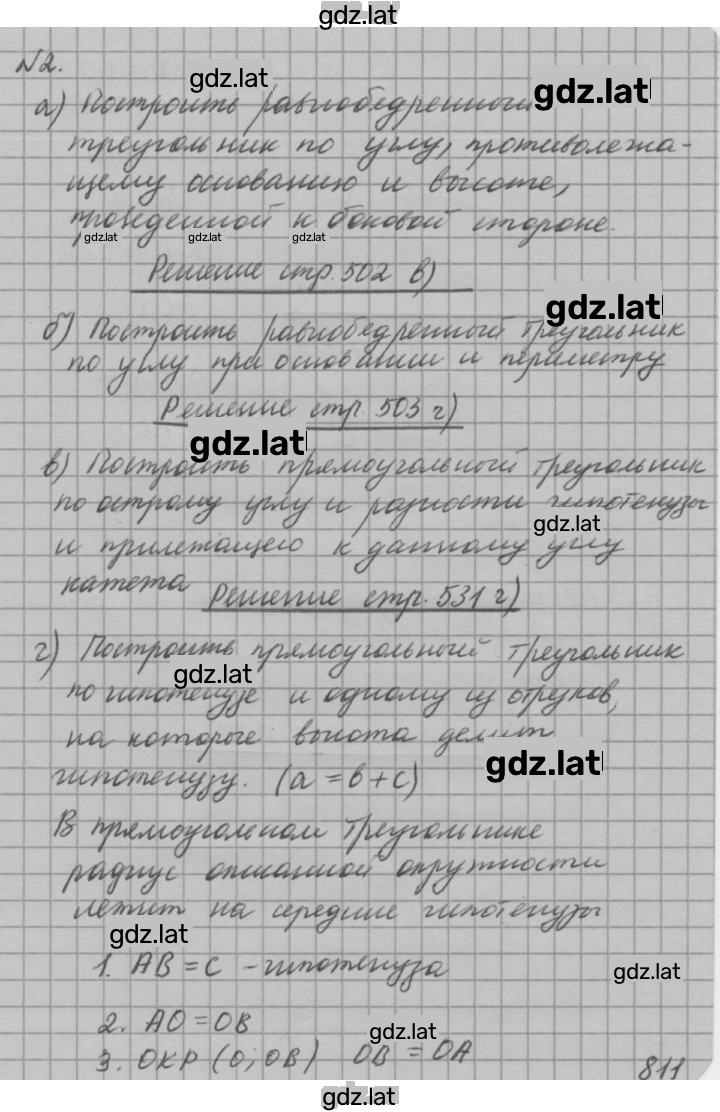 gdz.lat
№2.
gdz.lat
а) Построить равнобедренный
gdz.lat
треугольник по углу, противолежа-
щему основанию и высоте,
проведенной к боковой стороне.
gdz.lat gdz.lat gdz.lat
Решение стр. 502 в)
gdz.lat
б) Построить равнобедренный треугольник
по углу при основании и периметру
Решение стр. 503 г)
gdz.lat
в) Построить прямоугольный треугольник
по острому углу и разности гипотенузы
gdz.lat
и прилежащего к данному углу
катета
Решение стр. 531 г)
г) Построить прямоугольный треугольник
gdz.lat
по гипотенузе и одному из отрезков,
на которые высота делит
gdz.lat
гипотенузу. (a = b + c)
В прямоугольном треугольнике
радиус описанной окружности
лежит на середине гипотенузы
gdz.lat
1. AB = C - гипотенуза
gdz.lat
2. AO = OB
gdz.lat
3. ОКР (O; OB) OB = OA
811
gdz.lat